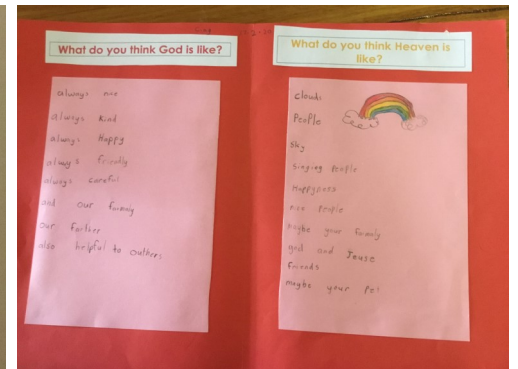 What do you think God is like?
always nice
always kind
always Happy
always friendly
always careful
and our famaly
our farther
also helpful to outhers
What do you think Heaven is
like?
clouds
People
sky
singing People
Happyness
nice People
maybe your famaly
god and Jeuse
friends
maybe your Pet